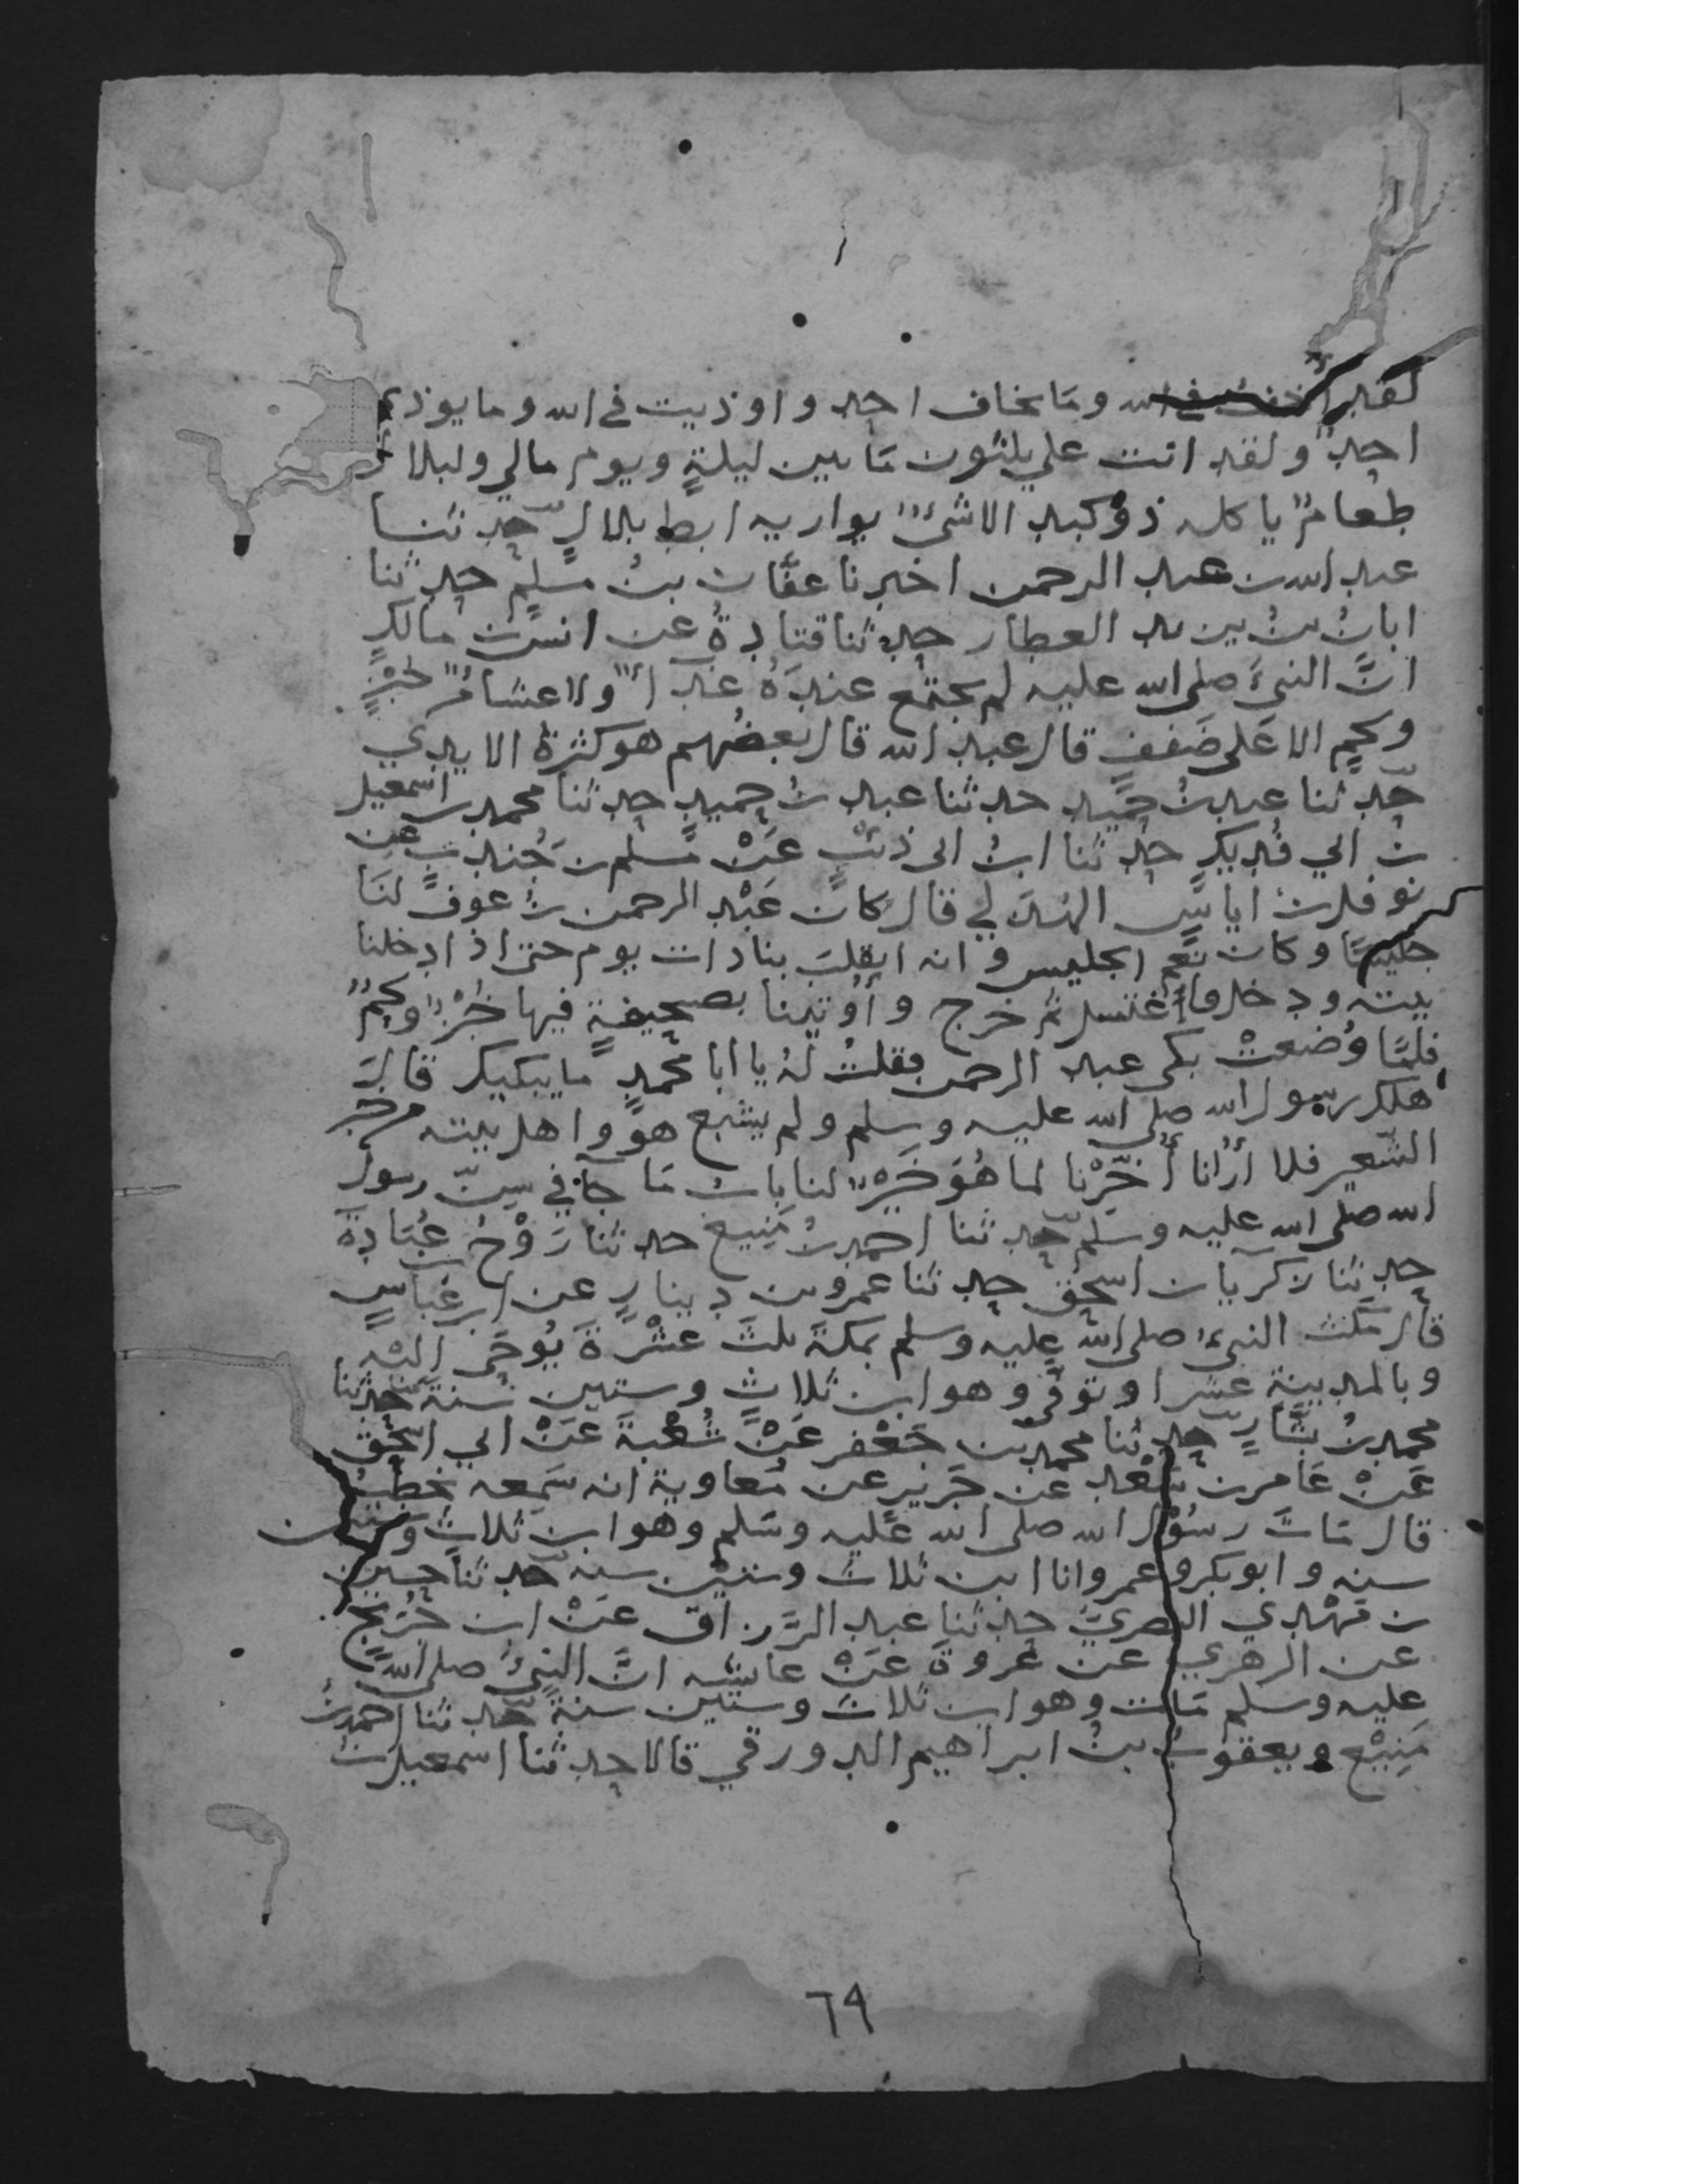 لقد أخفت في الله وما يخاف احد واوذيت في الله وما يوذي
احدٌ ولقد اتت علي ثلثون ما بين ليلةٍ ويوم مالي ولبلال
طعامٌ ياكله ذو كبد الا شيءٌ يواريه ابط بلالٍ حدثنا
عبد الله بن عبد الرحمن اخبرنا عفّان بنُ مسلمٍ حدثنا
ابانُ بنُ يزيد العطار حدثنا قتادةُ عن انس بن مالكٍ
انَّ النبيَ صلى الله عليه لم يجتمع عندَهُ غدآءٌ ولا عشاءٌ من خبزٍ
ولحمٍ الا عَلى ضَففٍ قال عبد الله قال بعضُهم هو كثرةُ الايدي
حدثنا عبد بنُ حُميد حدثنا عبد بنُ حميدٍ حدثنا محمد بن اسمعيل
بن ابي فُديك حدثنا ابنُ ابى ذئبٍ عَنْ مُسلم بن جُندبٍ عن
نوفل بن اياسٍ الهُذَلي قال كان عَبْد الرحمن بنُ عوفٍ لنَا
جليسًا وكان نعم الجليس وانه انقلبَ بنا ذات يوم حتى اذا دخلنا
بيته ودخل فاغتسل ثم خرج وأوتينا بصحيفةٍ فيها خُبْزٌ ولحمٌ
فلمّا وُضعتْ بكى عبد الرحمن فقلتُ لهُ يا ابا محمدٍ ما يبكيك قالَ
هلك رسول الله صلى الله عليه وسلم ولم يشبع هوَ واهل بيته من خبز
الشعير فلا أرَانا أُخّرْنا لما هُوَ خَيْرٌ لنا بابُ مَا جآء في سِنّ رسول
الله صلى الله عليه وسلم حدثنا احمد بنُ مَنيع حدثنا رَوْحُ بن عُبَادةَ
حدثنا زكريا بن اسحٰق حدثنا عمرو بن دينارٍ عن ابن عَباسٍ
قال مَكثَ النبيُ صلى اللهُ عليه وسلم بمكةَ ثلثَ عَشْرَةَ يُوحَى اليْه
وبالمدينةِ عشرا وتوفى وهو ابن ثلاثٍ وستين سنة حدثنا
محمد بنُ بشّارٍ حدثنا محمد بن جَعْفر عَنْ شُعْبةَ عَنْ ابي اسحٰق
عَنْ عَامر بن سَعْد عن جَرير عن مُعاوية انه سَمعه يخطبُ
قال مَاتَ رسُوْل الله صلى الله عَليه وسَلم وهو ابن ثلاثٍ وستين
سنه وابو بكر وعمر وانا ابن ثلاث وستيْن سنه حدثنا حسين
بن مَهْدي البصريّ حدثنا عبد الرَّزاق عَنْ ابن جُرَيْج
عن الزهري عن عُروةَ عَنْ عايشه انَّ النبيَّ صلى الله
عليه وسلم مَات وهو ابن ثلاث وستين سنةً حدثنا احمد بنُ
مَنِيْع ويعقوبُ بنُ ابراهيم الدورقي قالا حدثنا اسمعيل بنُ
٦٩